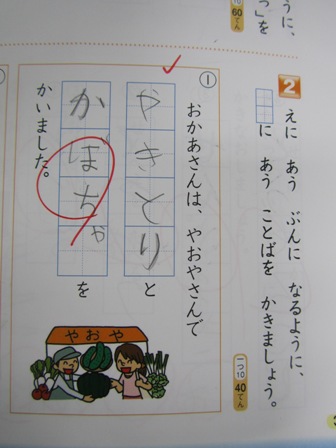 うに、
つ」を
10
60てん
2
えに あう ぶんに なるように、
に あう ことばを かきましょう。
一つ10
40てん
①
おかあさんは、やおやさんで
やきとりと
かぼちゃを
かいました。
やおや